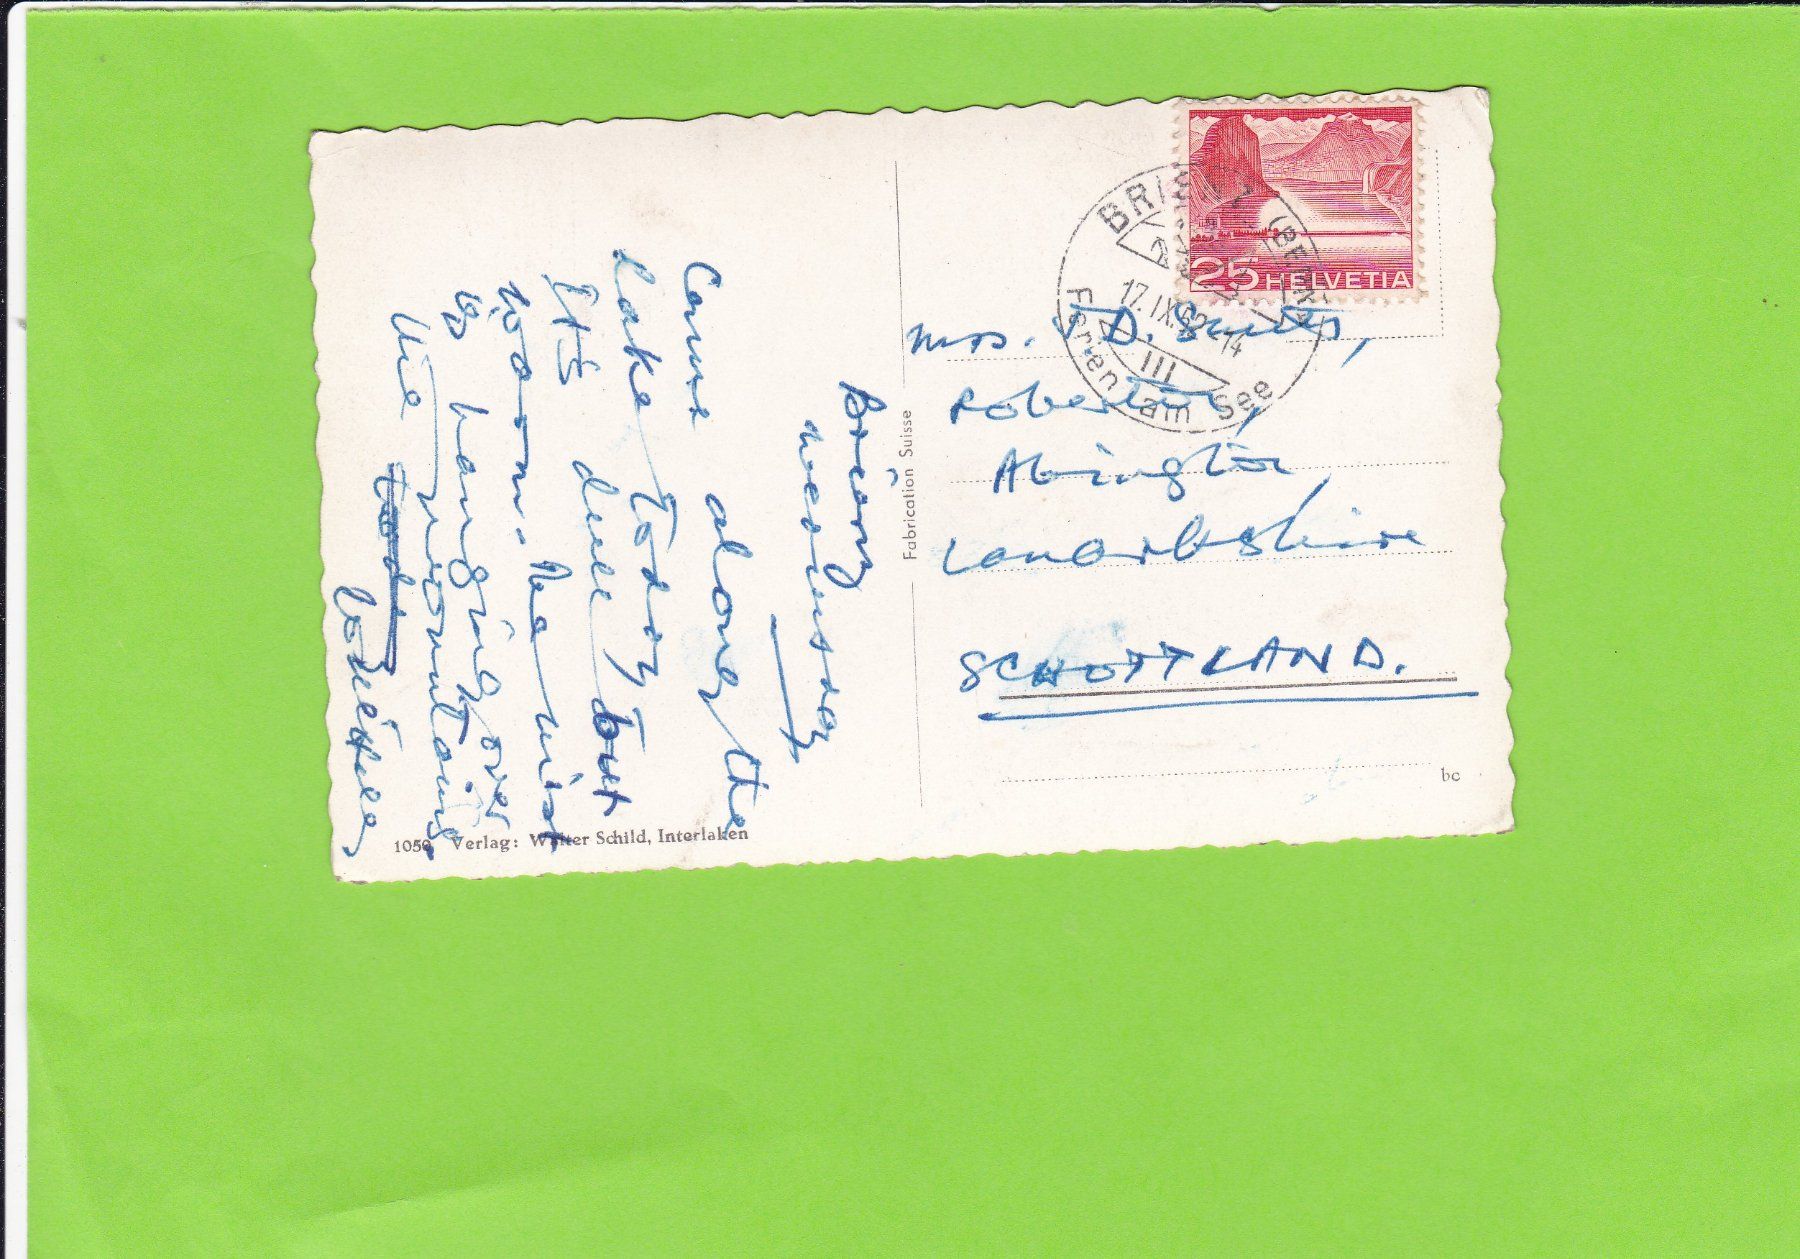 Brienz
Wednesday
Came along the
lake today
It's dull but
warm. The mist
is hanging over
the mountains.
Fabrication Suisse
1050 Verlag: Walter Schild, Interlaken
25 HELVETIA
BRIENZ (BERN)
17.IX.62-14
III
Ferien am See
Mrs. J D.
Roberton,
Abington,
Lanarkshire
SCHOTTLAND.
bc